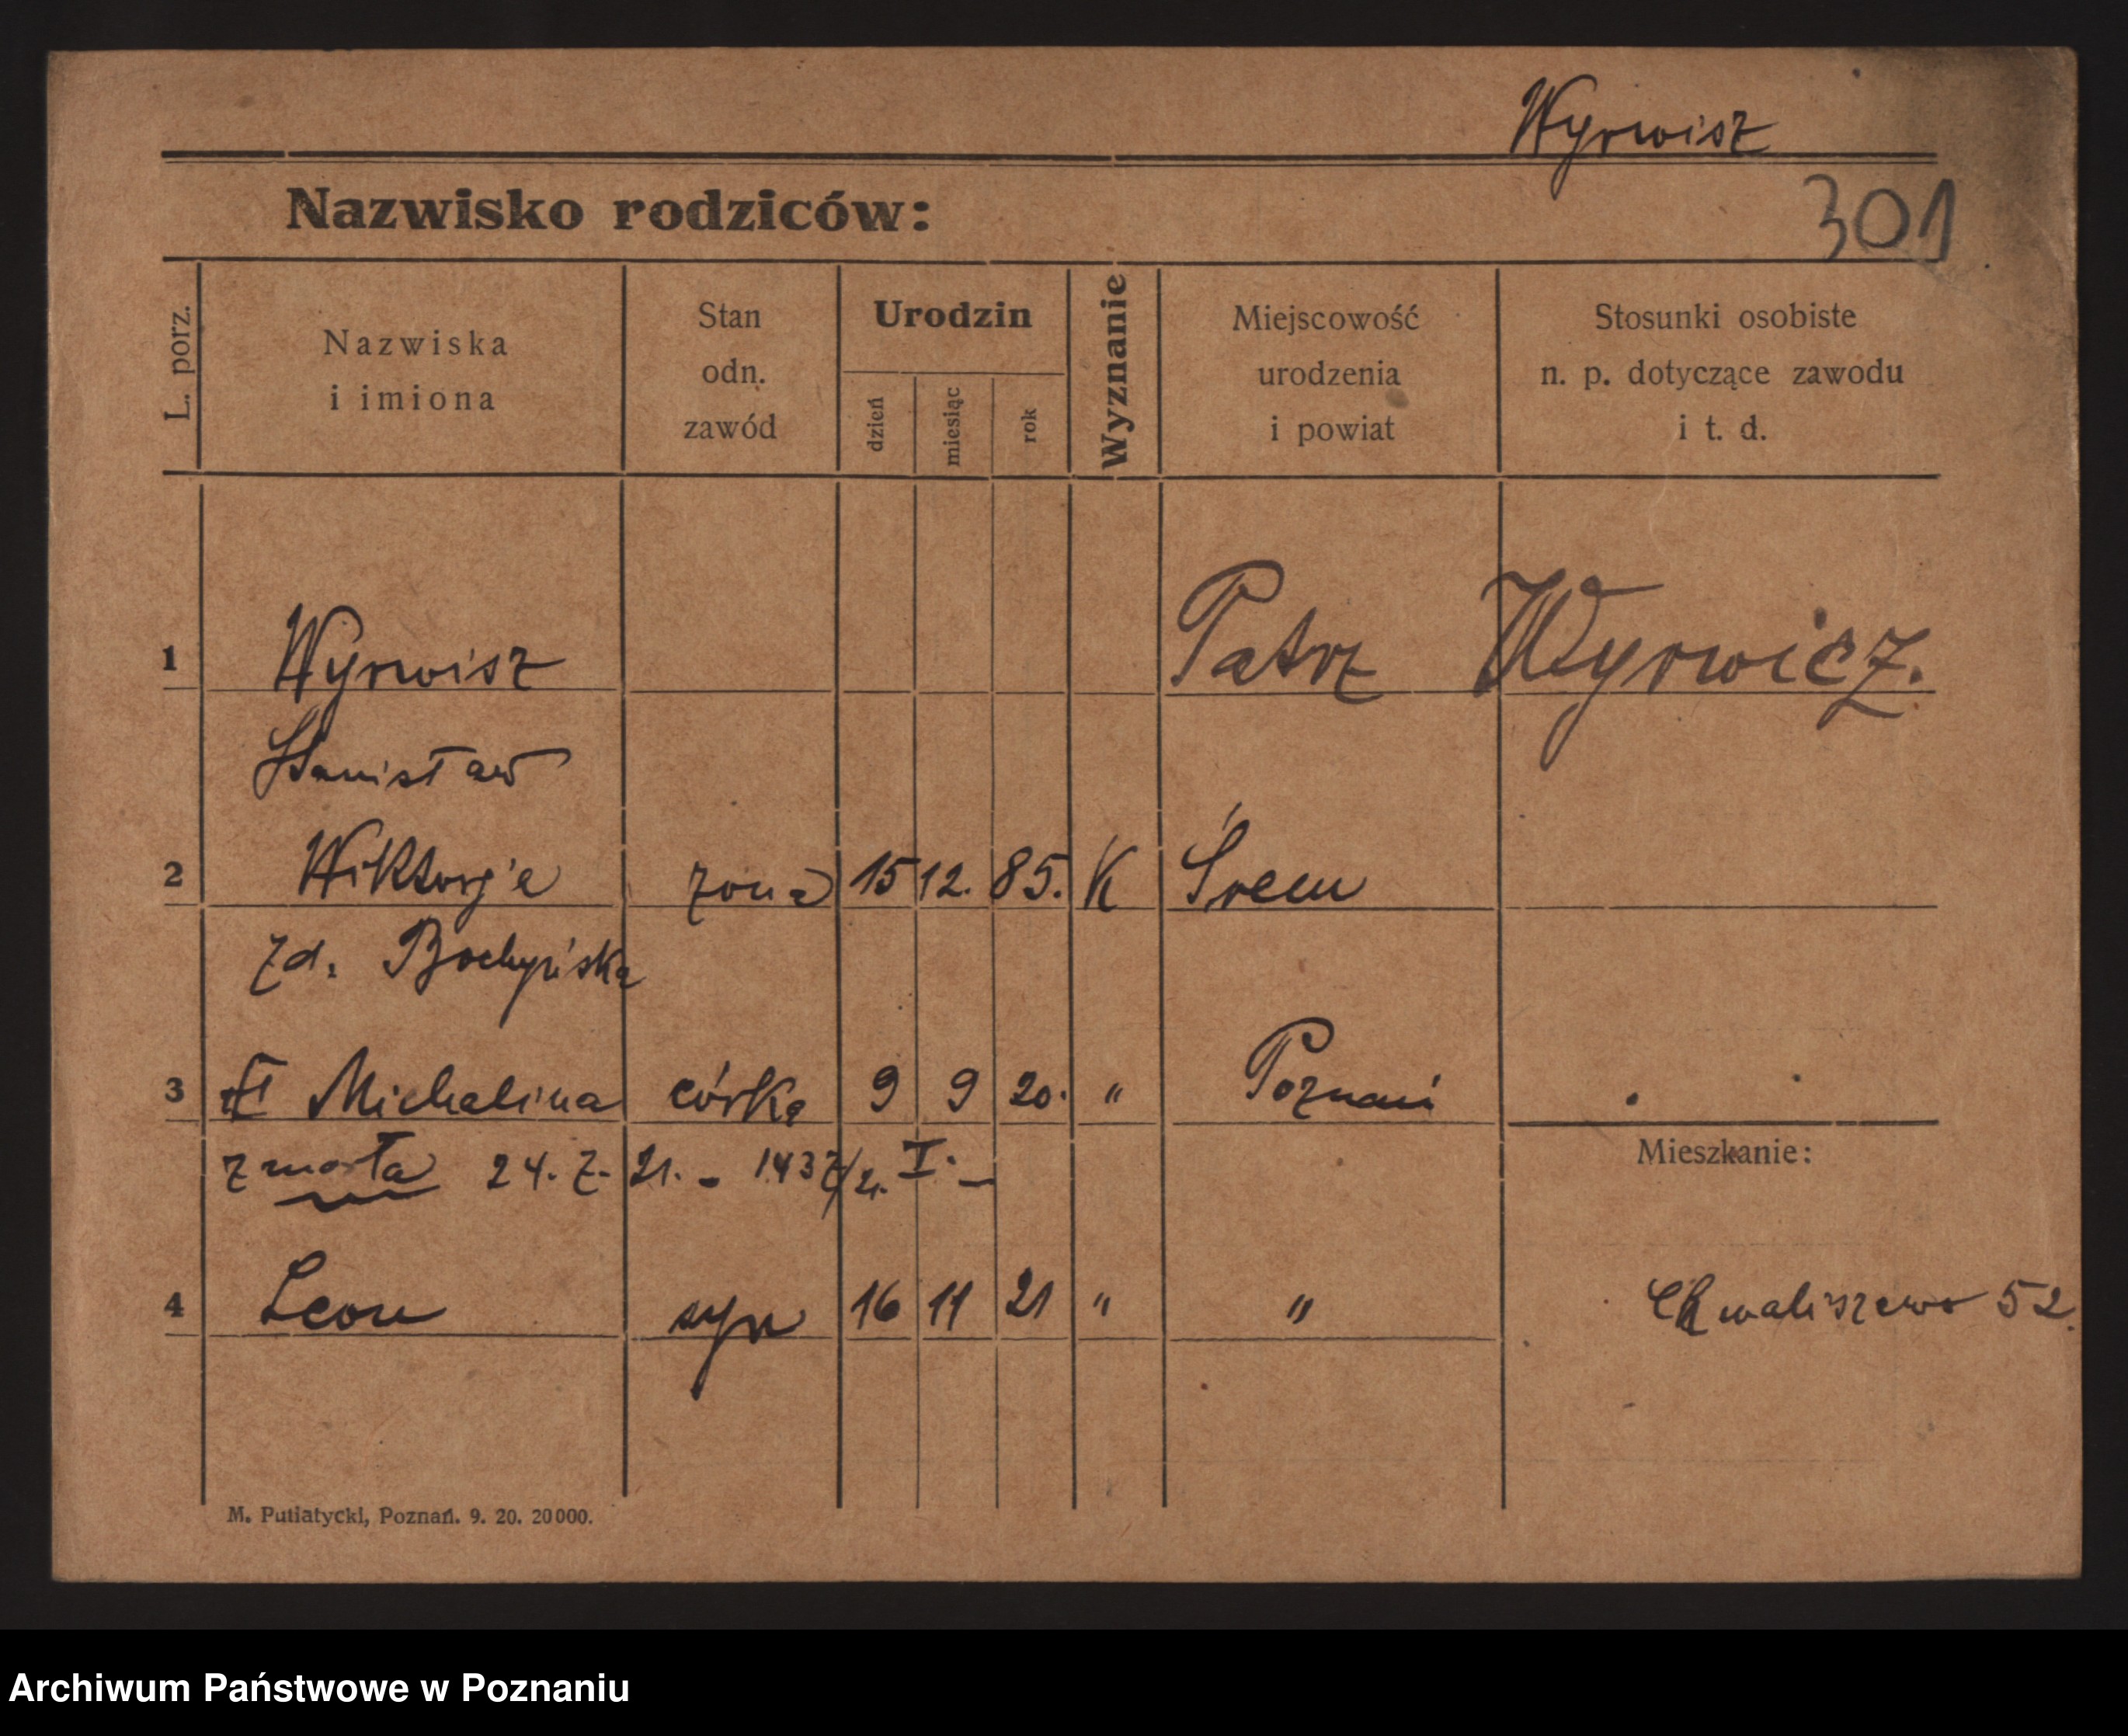 Wyrwisz
Nazwisko rodziców:
301
L. porz.
Nazwiska
i imiona
Stan
odn.
zawód
Urodzin
dzień
miesiąc
rok
Wyznanie
Miejscowość
urodzenia
i powiat
Stosunki osobiste
n. p. dotyczące zawodu
i t. d.
1 Wyrwisz Patrz Wyrwicz.
Stanisław
2 Wiktorja żona 15 12. 85. K Śrem
zd. Bochyńska
3 Michalina córka 9 9 20. " Poznań
zmarła 24. 7. 21. - I. -
Mieszkanie:
4 Leon syn 16 11 21 " "
Chwaliszewo 52.
M. Putiatycki, Poznań. 9. 20. 20000.
Archiwum Państwowe w Poznaniu